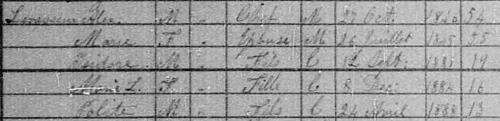 Levasseur Alex. M " Chef M 27 Oct. 1846 54
Marie F " Epouse M 26 Juillet 1845 55
Isidore M " Fils C 12 Octo: 1881 19
L. F " Fille C 8 Dec: 1884 16
Polite M " Fils C 24 April 1888 13